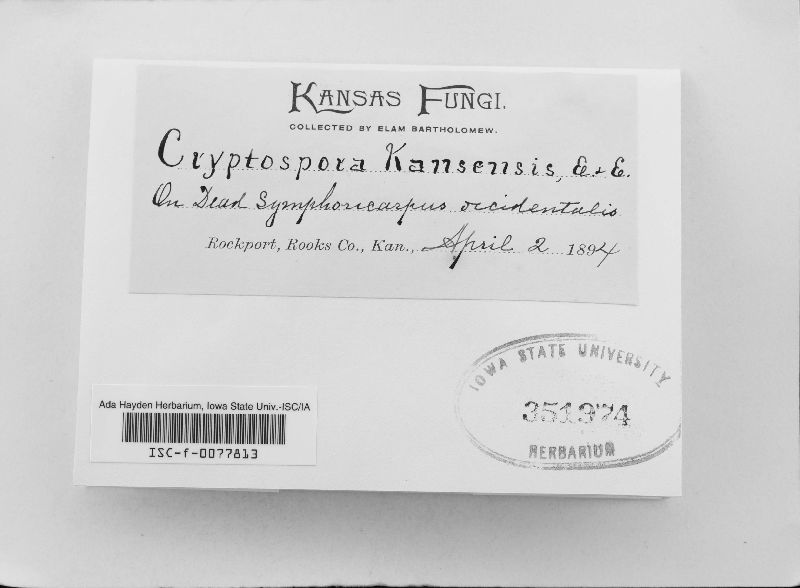 KANSAS FUNGI.
COLLECTED BY ELAM BARTHOLOMEW.
Cryptospora Kansensis, E. & E.
On Dead Symphoricarpus occidentalis
Rockport, Rooks Co., Kan., April 2 1894
IOWA STATE UNIVERSITY
351974
HERBARIUM
Ada Hayden Herbarium, Iowa State Univ.-ISC/IA
ISC-f-0077813